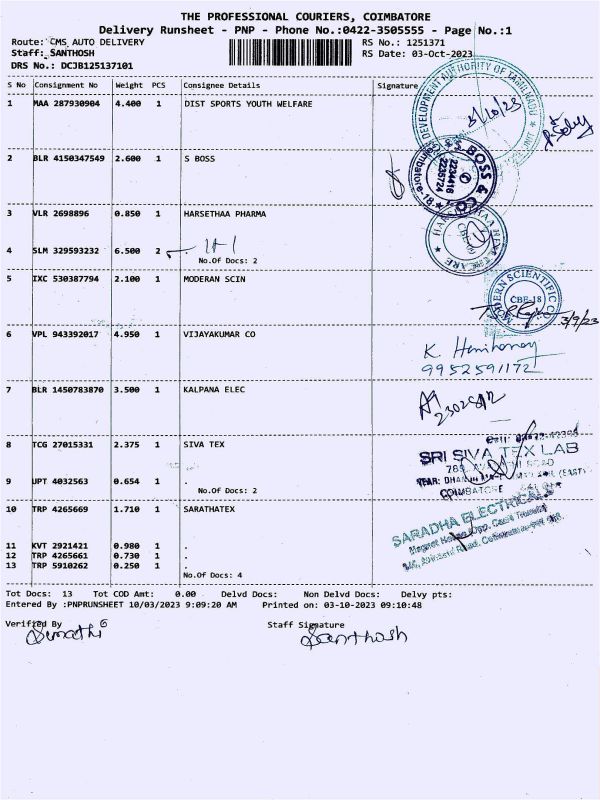 THE PROFESSIONAL COURIERS, COIMBATORE
Delivery Runsheet - PNP - Phone No.:0422-3505555 - Page No.:1
Route: CMS AUTO DELIVERY RS No.: 1251371
Staff: SANTHOSH RS Date: 03-Oct-2023
DRS No.: DCJB125137101
S No Consignment No Weight PCS Consignee Details Signature
1 MAA 287930904 4.400 1 DIST SPORTS YOUTH WELFARE
DEVELOPMENT AUTHORITY OF TAMILNADU
3/10/23
2 BLR 4150347549 2.600 1 S BOSS
S BOSS & CO.
2234416
2235724
Coimbatore-18
3 VLR 2698896 0.850 1 HARSETHAA PHARMA
4 SLM 329593232 6.500 2 .
No.Of Docs: 2
5 IXC 530387794 2.100 1 MODERAN SCIN
MODERN SCIENTIFIC CO
CBE-18
3/9/23
6 VPL 943392017 4.950 1 VIJAYAKUMAR CO
9952591172
7 BLR 1450783870 3.500 1 KALPANA ELEC
8 TCG 27015331 2.375 1 SIVA TEX
SRI SIVA TEX LAB
COIMBATORE
9 UPT 4032563 0.654 1 .
No.Of Docs: 2
10 TRP 4265669 1.710 1 SARATHATEX
SARADHA ELECTRICALS
11 KVT 2921421 0.980 1 .
12 TRP 4265661 0.730 1 .
13 TRP 5910262 0.250 1 .
No.Of Docs: 4
Tot Docs: 13 Tot COD Amt: 0.00 Delvd Docs: Non Delvd Docs: Delvy pts:
Entered By :PNPRUNSHEET 10/03/2023 9:09:20 AM Printed on: 03-10-2023 09:10:48
Verified By Staff Signature
Santhosh